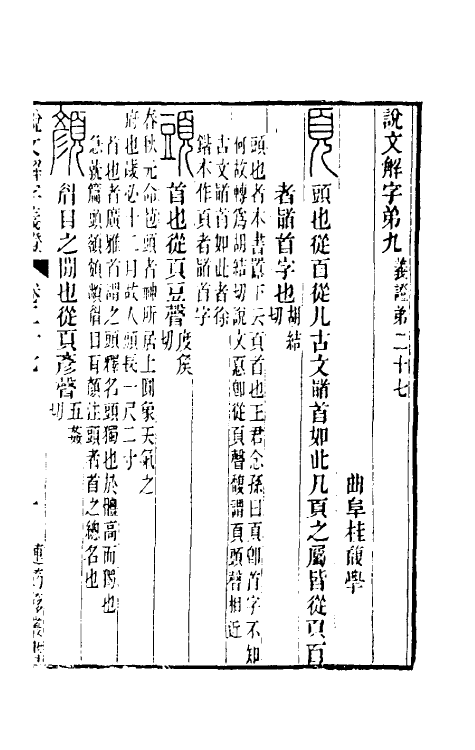 說文解字弟九 義證弟二十七
曲阜桂馥學
頁 頭也從𦣻從儿古文䭫首如此凡頁之屬皆從頁𦣻
者䭫首字也 胡結切
頭也者本書𩕄下云頁首也王君念孫曰頁卽首字不知
何故轉爲胡結切說文 卽從頁聲馥謂頁頭聲相近
古文䭫首如此者徐
鍇本作頁者䭫首字
頭 首也從頁豆聲 度矦切
春秋元命苞頭者神所居上圓象天氣之
府也歲必十二月故人頭長一尺二寸
首也者廣雅首謂之頭釋名頭獨也於體高而獨也
急就篇頭頟頞𩓥眉目耳顏注頭者首之總名也
顏 眉目之閒也從頁彥聲 五姦切
說文解字義證 卷二十七 一 連筠簃叢書